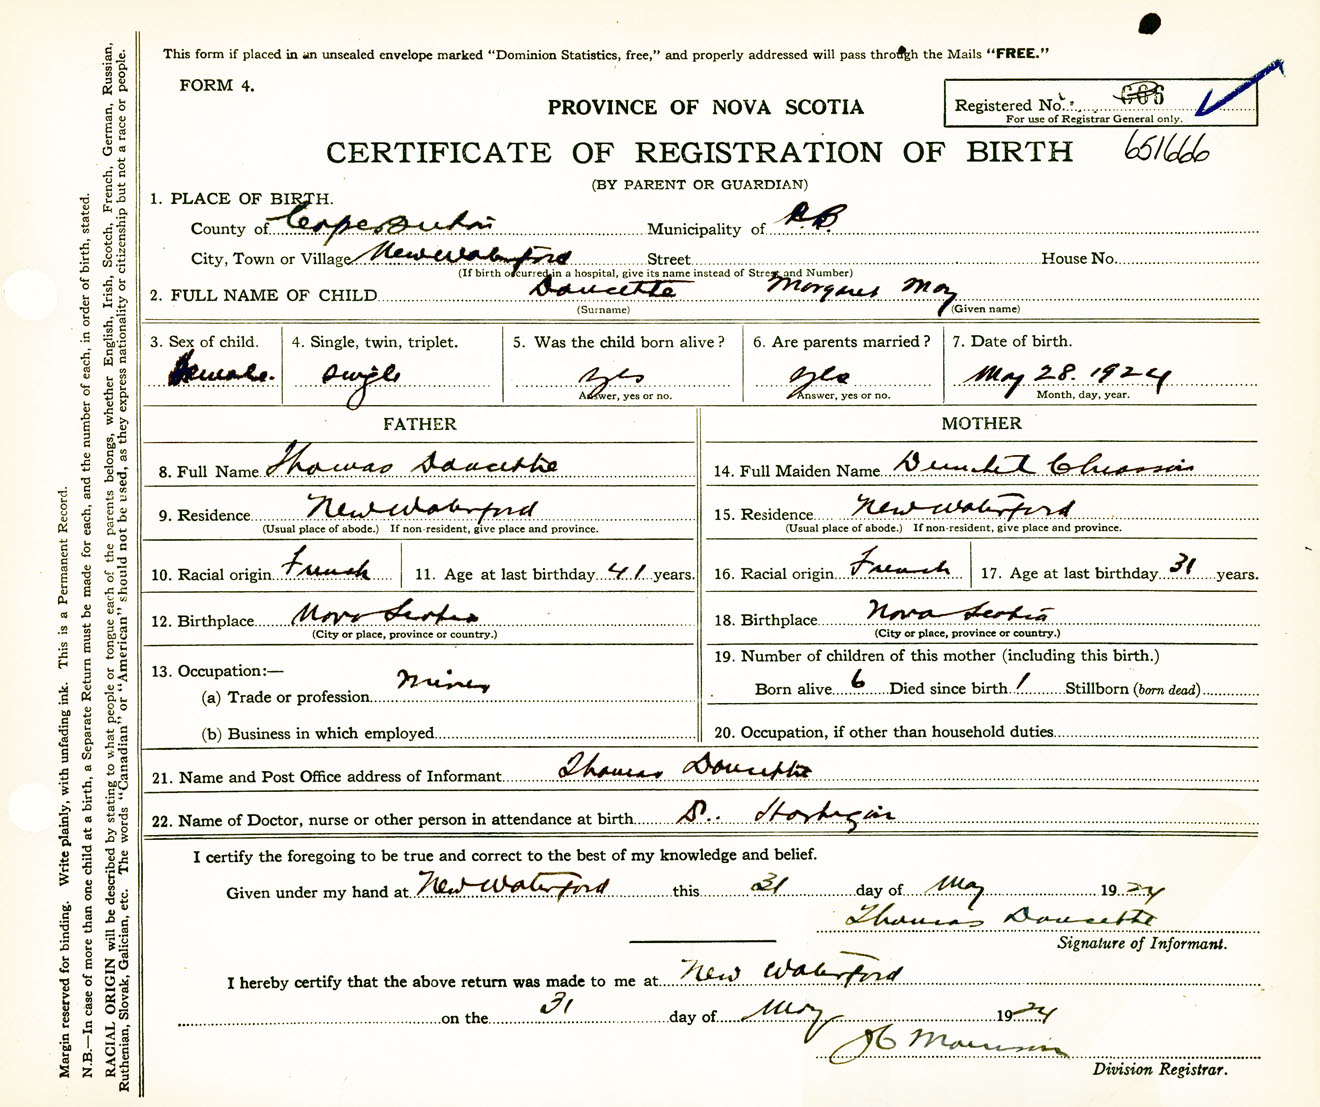 This form if placed in an unsealed envelope marked "Dominion Statistics, free," and properly addressed will pass through the Mails "FREE."
FORM 4.
PROVINCE OF NOVA SCOTIA
Registered No.
For use of Registrar General only.
651666
CERTIFICATE OF REGISTRATION OF BIRTH
(BY PARENT OR GUARDIAN)
1. PLACE OF BIRTH.
County of Cape Breton Municipality of C.B.
City, Town or Village New Waterford Street House No.
(If birth occurred in a hospital, give its name instead of Street and Number)
2. FULL NAME OF CHILD Doucette Margaret May
(Surname) (Given name)
3. Sex of child. 4. Single, twin, triplet. 5. Was the child born alive? 6. Are parents married? 7. Date of birth.
Female. Single yes yes May 28. 1924
Answer, yes or no. Answer, yes or no. Month, day, year.
FATHER
8. Full Name Thomas Doucette
9. Residence New Waterford
(Usual place of abode.) If non-resident, give place and province.
10. Racial origin French 11. Age at last birthday 41 years.
12. Birthplace Nova Scotia
(City or place, province or country.)
13. Occupation:—
(a) Trade or profession Miner
(b) Business in which employed
MOTHER
14. Full Maiden Name Chiasson
15. Residence New Waterford
(Usual place of abode.) If non-resident, give place and province.
16. Racial origin French 17. Age at last birthday 31 years.
18. Birthplace Nova Scotia
(City or place, province or country.)
19. Number of children of this mother (including this birth.)
Born alive 6 Died since birth 1 Stillborn (born dead)
20. Occupation, if other than household duties
21. Name and Post Office address of Informant Thomas Doucette
22. Name of Doctor, nurse or other person in attendance at birth
I certify the foregoing to be true and correct to the best of my knowledge and belief.
Given under my hand at New Waterford this 31 day of May 1924
Thomas Doucette
Signature of Informant.
I hereby certify that the above return was made to me at New Waterford
on the 31 day of May 1924
Morrison
Division Registrar.
Margin reserved for binding. Write plainly, with unfading ink. This is a Permanent Record.
N.B.—In case of more than one child at a birth, a Separate Return must be made for each, and the number of each, in order of birth, stated.
RACIAL ORIGIN will be described by stating to what people or tongue each of the parents belongs, whether English, Irish, Scotch, French, German, Russian,
Ruthenian, Slovak, Galician, etc. The words "Canadian" or "American" should not be used, as they express nationality or citizenship but not a race or people.